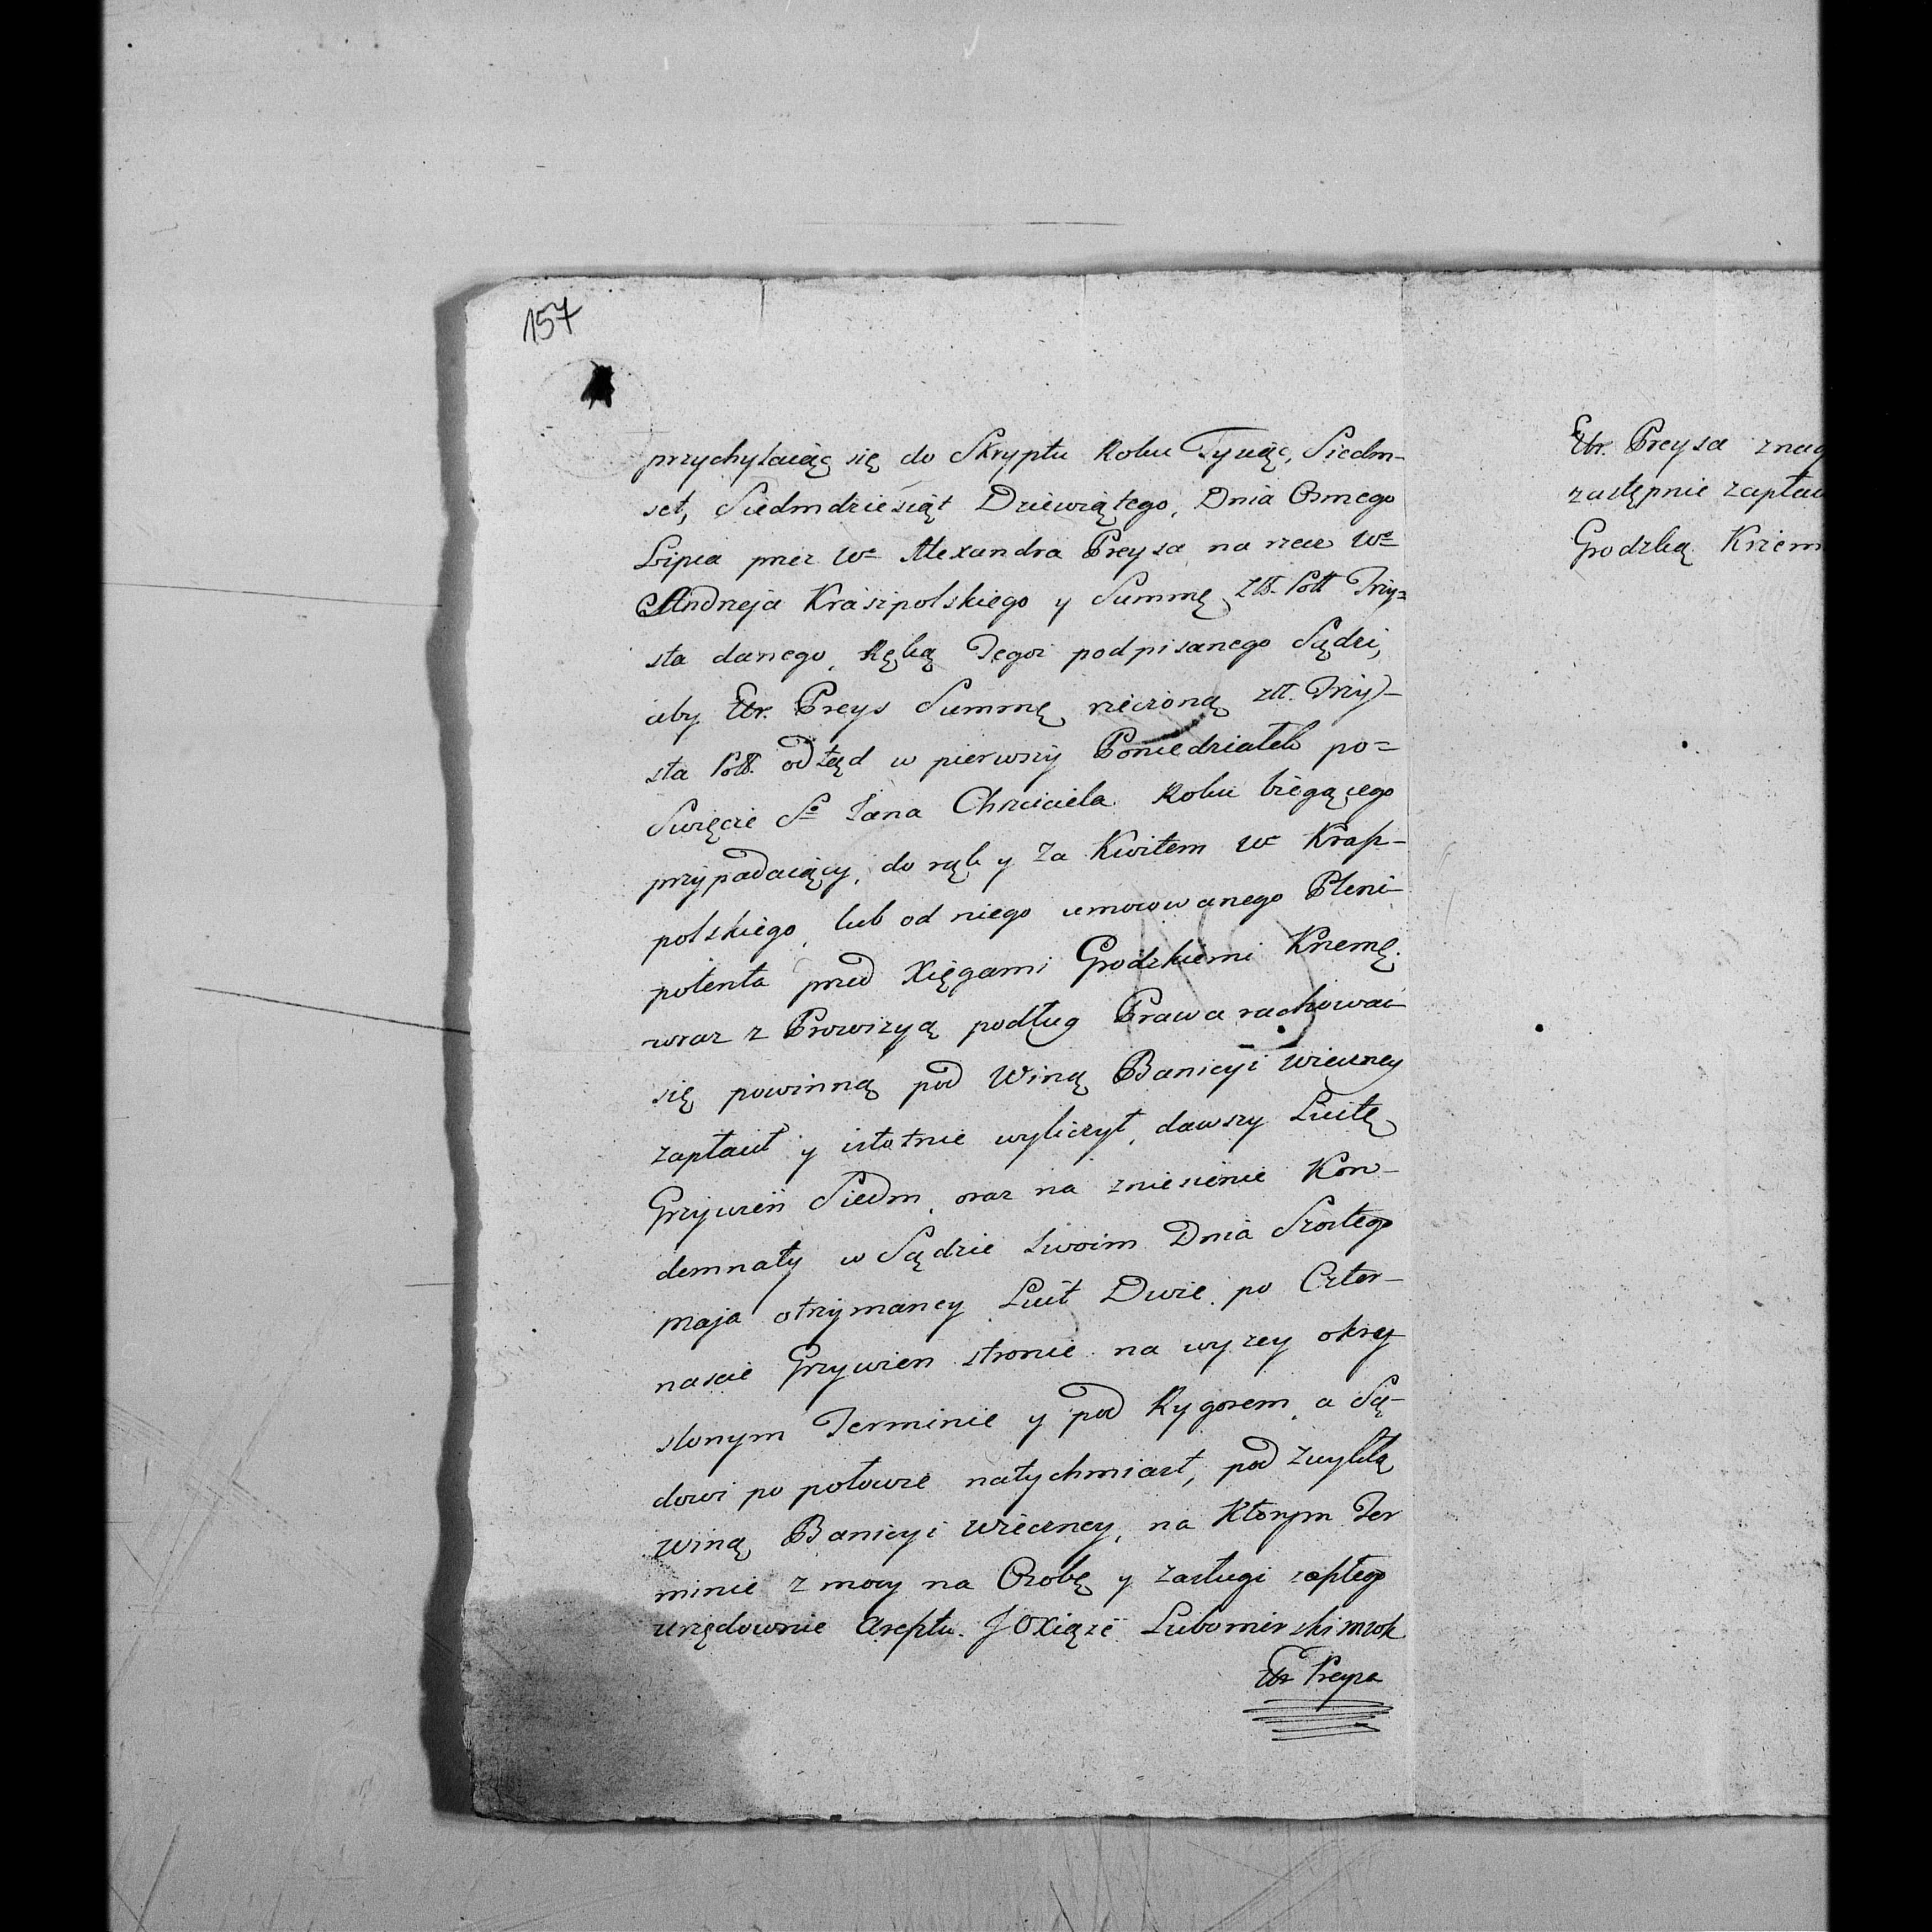 157
przychylaiąc się do Skryptu Roku Tysiąc, Siedm-
set, Siedmdziesiąt Dziewiątego, Dnia Osmego
Lipca przez Wo Alexandra Preysa na rzecz Wo
Andrzeja Krasspolskiego y Summę Złł. Poll Trzy=
sta danego, Ręką Tegoż podpisanego Sądzi,
aby Ur. Preys Summę rzeczoną złł. Trzy-
sta Poll. odtąd w pierwszy Poniedziałek po=
Swięcie So Jana Chrzciciela Roku biegącego
przypadaiący, do rąk y za Kwitem Wo Krass-
polskiego, lub od niego umocowanego Pleni-
potenta przed Xięgami Grodzkiemi Krzemę.
wraz z Prowizyą podług Prawa rachować
się powinną pod Winą Banicyi wieczney
zapłacił y istotnie wyliczył, dawszy Luitę
Grzywień Siedm, oraz na zniesienie Kon-
demnaty w Sądzie swoim Dnia Szostego
maja otrzymaney Luit Dwie po Czter-
nascie Grzywien stronie na wyzey okre-
slonym Terminie y pod Rygorem, a Są-
dowi po połowie natychmiast, pod zwykłą
winą Banicyi wieczney, na Ktorym Ter
minie z mocy na Osobę y zasługi
urzędownie Aresztu. JO Xiąże Lubomirski
Ur Preysa
Ur. Preysa znag
zastępnie zapłac
Grodzką Krzem